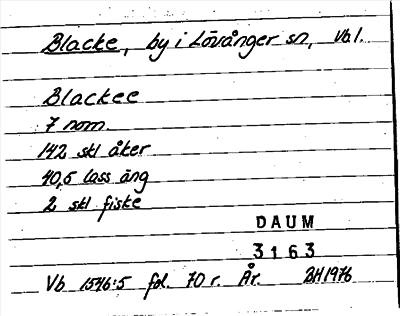 Blacke, by i Lövånger sn, Vbl.
Blackee
7 nom.
142 skl åker
40,5 lass äng
2 skl fiske
DAUM
3163
Vb 1546:5 fol. 70 r. År. BH 1976